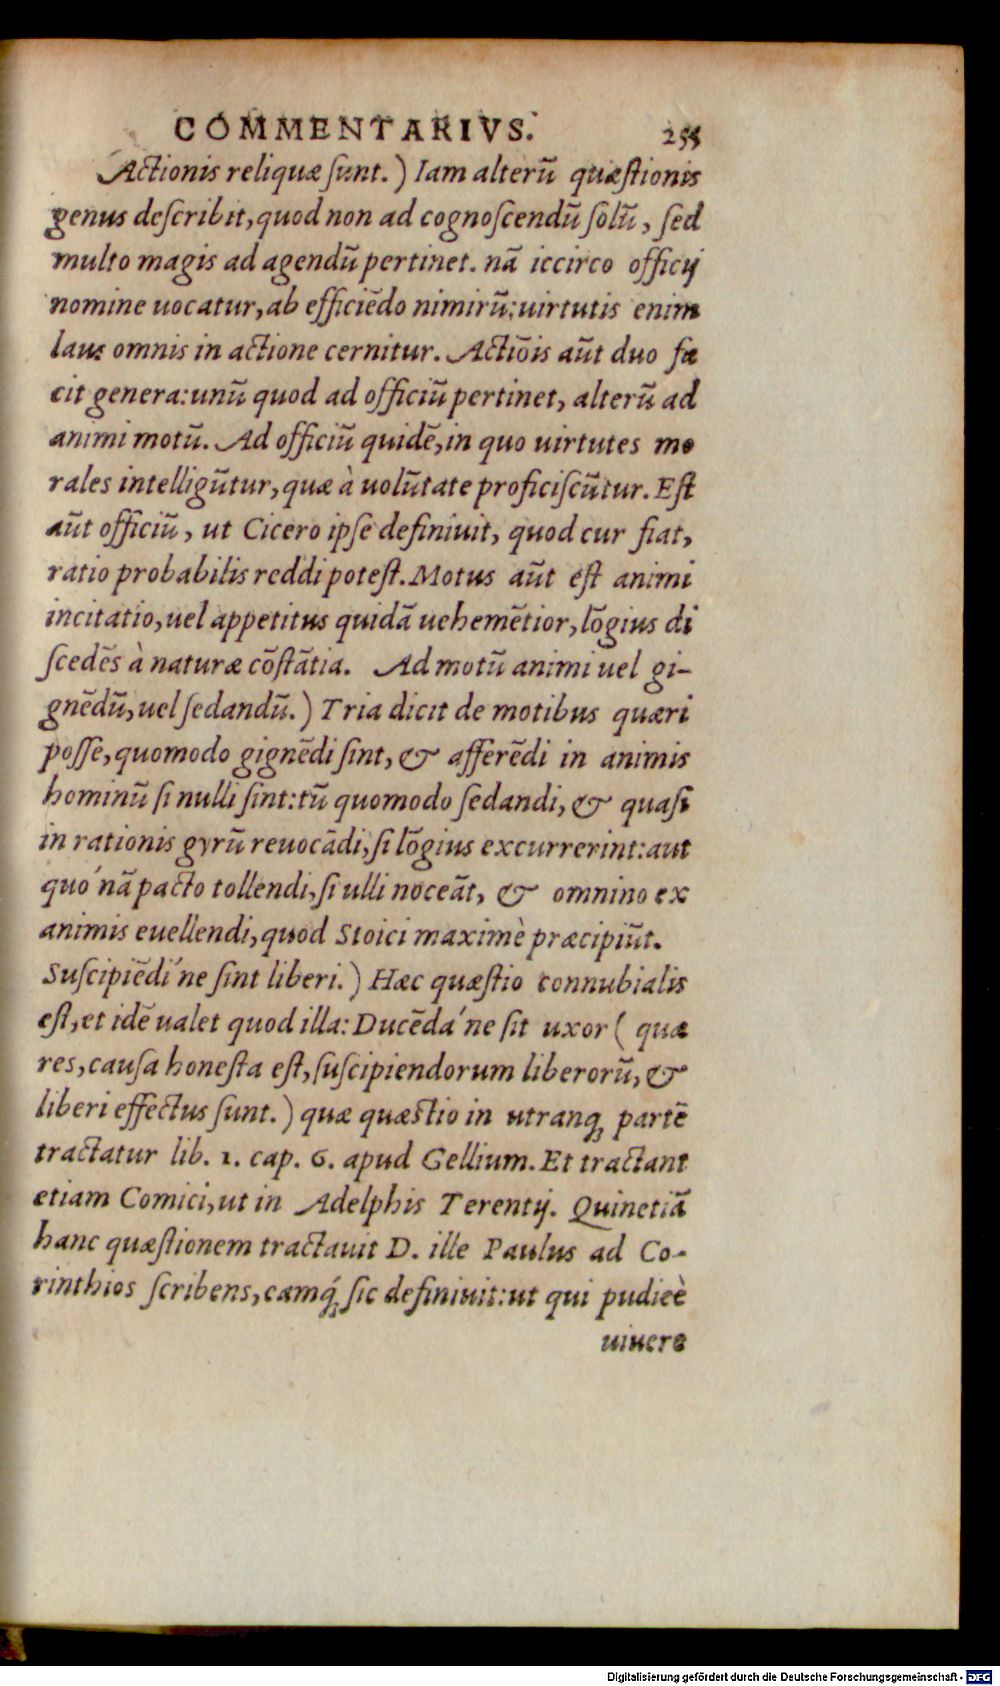 COMMENTARIVS. 255
Actionis reliquæ ſunt.) Iam alterū quæſtionis
genus deſcribit, quod non ad cognoſcendū ſolū, ſed
multo magis ad agendū pertinet. nā iccirco officij
nomine uocatur, ab efficiēdo nimirū: uirtutis enim
laus omnis in actione cernitur. Actiōis aūt duo fa
cit genera: unū quod ad officiū pertinet, alterū ad
animi motū. Ad officiū quidē, in quo uirtutes mo
rales intelligūtur, quæ à uolūtate proficiſcūtur. Eſt
aūt officiū, ut Cicero ipſe definiuit, quod cur fiat,
ratio probabilis reddi poteſt. Motus aūt eſt animi
incitatio, uel appetitus quidā uehemētior, lōgius di
ſcedēs à naturæ cōſtātia. Ad motū animi uel gi-
gnēdū, uel ſedandū.) Tria dicit de motibus quæri
poſſe, quomodo gignēdi ſint, & afferēdi in animis
hominū ſi nulli ſint: tū quomodo ſedandi, & quaſi
in rationis gyrū reuocādi, ſi lōgius excurrerint: aut
quó nā pacto tollendi, ſi ulli noceāt, & omnino ex
animis euellendi, quod Stoici maximè præcipiūt.
Suſcipiēdí ne ſint liberi.) Hæc quæſtio connubialis
eſt, et idē ualet quod illa: Ducēdá ne ſit uxor ( quæ
res, cauſa honeſta eſt, ſuſcipiendorum liberorū, &
liberi effectus ſunt.) quæ quæstio in utranq; partē
tractatur lib. 1. cap. 6. apud Gellium. Et tractant
etiam Comici, ut in Adelphis Terentij. Quinetiā
hanc quæſtionem tractauit D. ille Paulus ad Co-
rinthios ſcribens, eamq́; ſic definiuit: ut qui pudicè
uiuere
Digitalisierung gefördert durch die Deutsche Forschungsgemeinschaft - DFG